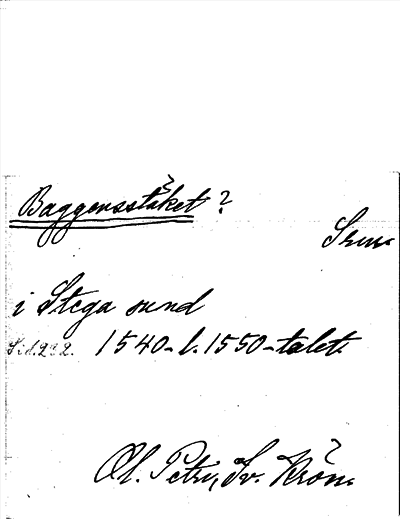 Baggensstäket ?
Srm.
i Stega sund
Sid. 292. 1540- l. 1550-talet.
Ol. Petri, Sv. Krön.